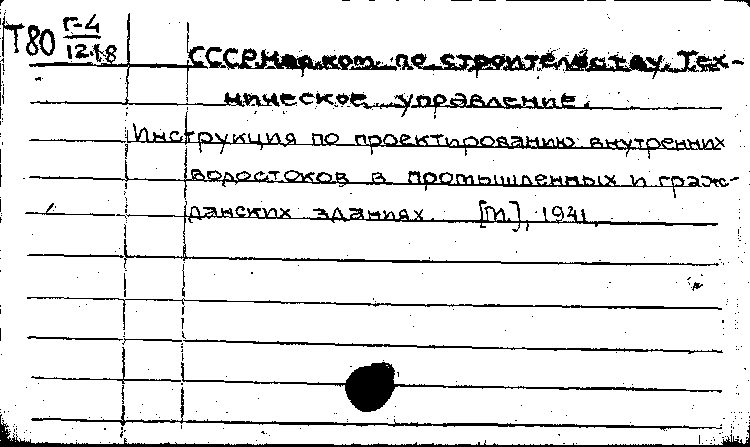 Т80 Г-4
1218
СССР. Нар. ком. по строительству. Тех-
ническое управление.
Инструкция по проектированию внутренних
водостоков в промышленных и граж-
данских зданиях. [М.], 1941.